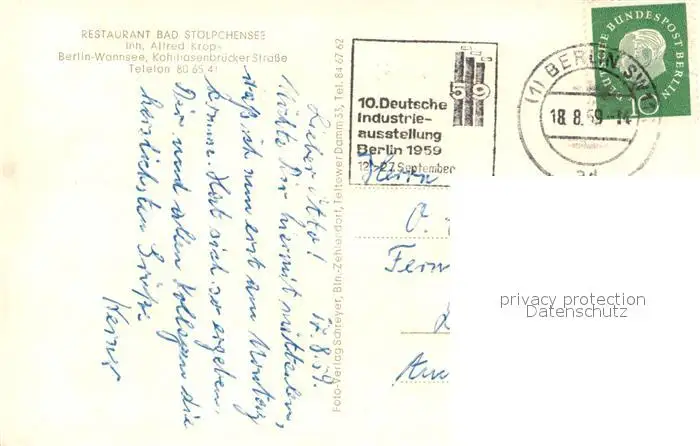 RESTAURANT BAD STOLPCHENSEE
Inh. Alfred Krops
Berlin-Wannsee, Kohlhasenbrücker Straße
Telefon 80 65 41
17.8.59.
Lieber Otto!
Möchte Dir hiermit mitteilen,
daß ich nun erst am Montag
komme. Hat sich so ergeben.
Dir und allen Kollegen die
herzlichsten Grüße
Werner
Foto-Verlag Schreyer, Bln-Zehlendorf, Teltower Damm 33, Tel. 84 67 62
10. Deutsche
Industrie-
ausstellung
Berlin 1959
12.-27. September
(1) BERLIN SW
18.8.59-14
ad
DEUTSCHE BUNDESPOST BERLIN
10
Herrn
O.
Fern
Am
privacy protection
Datenschutz